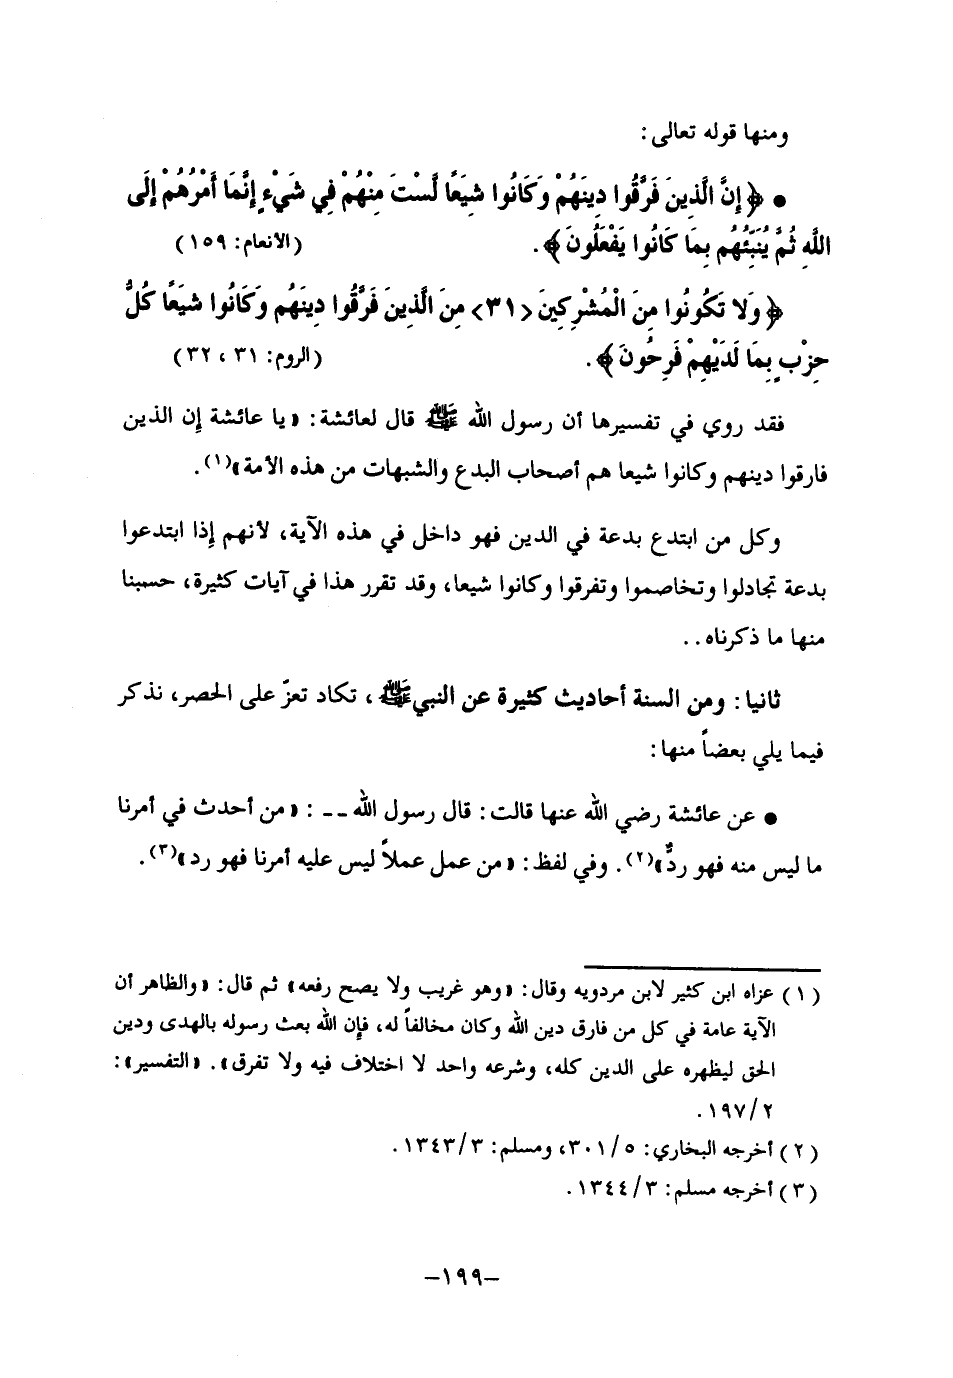 ومنها قوله تعالى:
● ﴿ إِنَّ الَّذِينَ فَرَّقُوا دِينَهُمْ وَكَانُوا شِيَعًا لَّسْتَ مِنْهُمْ فِي شَيْءٍ إِنَّمَا أَمْرُهُمْ إِلَى
اللَّهِ ثُمَّ يُنَبِّئُهُم بِمَا كَانُوا يَفْعَلُونَ ﴾. (الأنعام: ١٥٩)
﴿ وَلَا تَكُونُوا مِنَ الْمُشْرِكِينَ <٣١> مِنَ الَّذِينَ فَرَّقُوا دِينَهُم وَكَانُوا شِيَعًا كُلُّ
حِزْبٍ بِمَا لَدَيْهِمْ فَرِحُونَ ﴾. (الروم: ٣١ ، ٣٢)
فقد روي في تفسيرها أن رسول الله ﷺ قال لعائشة: « يا عائشة إن الذين
فارقوا دينهم وكانوا شيعا هم أصحاب البدع والشبهات من هذه الأمة»(١).
وكل من ابتدع بدعة في الدين فهو داخل في هذه الآية، لأنهم إذا ابتدعوا
بدعة تجادلوا وتخاصموا وتفرقوا وكانوا شيعا، وقد تقرر هذا في آيات كثيرة، حسبنا
منها ما ذكرناه..
ثانيا: ومن السنة أحاديث كثيرة عن النبي ﷺ ، تكاد تعزّ على الحصر، نذكر
فيما يلي بعضاً منها:
● عن عائشة رضي الله عنها قالت: قال رسول الله -- : « من أحدث في أمرنا
ما ليس منه فهو ردٌّ»(٢). وفي لفظ: « من عمل عملاً ليس عليه أمرنا فهو رد»(٣).
(١) عزاه ابن كثير لابن مردويه وقال: «وهو غريب ولا يصح رفعه» ثم قال: «والظاهر أن
الآية عامة في كل من فارق دين الله وكان مخالفاً له، فإن الله بعث رسوله بالهدى ودين
الحق ليظهره على الدين كله، وشرعه واحد لا اختلاف فيه ولا تفرق». «التفسير»:
٢/١٩٧.
(٢) أخرجه البخاري: ٥/٣٠١، ومسلم: ٣/١٣٤٣.
(٣) أخرجه مسلم: ٣/١٣٤٤.
-١٩٩-